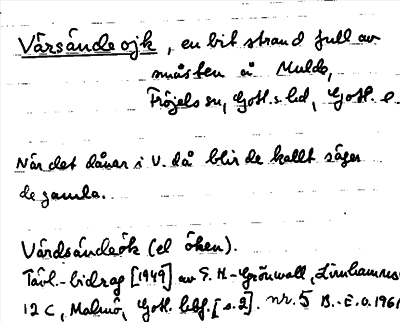 Vårsåndeojk, en bit strand full av
småsten å Mulde,
Fröjels sn, Gotl. s. hd, Gotl. l.
När det dånar i V. då blir de kallt säger
de gamla.
Vårdsåndeök (el öken).
Tävl.-bidrag [1949] av S. H-Grönwall, Limhamns
12 C, Malmö, Gotl. blg. [s. 2]. nr. 5 B.-E.O. 1961